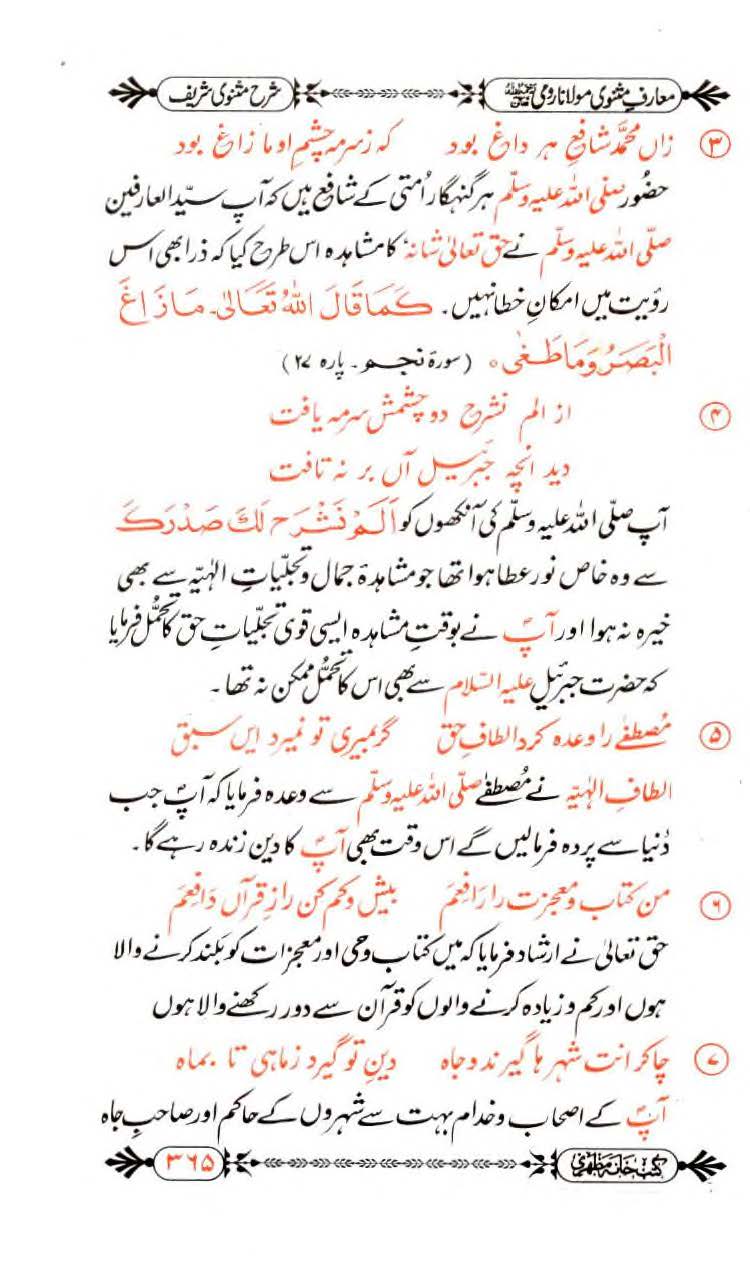 معارفِ مثنوی مولانا رومی رحمۃ اللہ علیہ شرح مثنوی شریف
۳ زاں محمدؐ شافعِ ہر داغ بود کہ زسرمہ چشمِ او ما زاغ بود
حضُور صلی اللہ علیہ وسلّم ہر گنہگار اُمتی کے شافع ہیں کہ آپ سیّد العارفین
صلّی اللہ علیہ وسلّم نے حق تعالیٰ شانہٗ کا مشاہدہ اس طرح کیا کہ ذرا بھی اس
رؤیت میں امکانِ خطا نہیں۔ كَمَا قَالَ اللهُ تَعَالٰى۔ مَازَاغَ
الْبَصَرُ وَمَا طَغٰى ○ (سورۃ نجم۔ پارہ ۲۷)
۴ از الم نشرح دو چشمش سرمہ یافت
دید انچہ جبرئیل آں بر نہ تافت
آپ صلّی اللہ علیہ وسلّم کی آنکھوں کو اَلَمْ نَشْرَحْ لَكَ صَدْرَكَ
سے وہ خاص نور عطا ہوا تھا جو مشاہدۂ جمال و تجلّیاتِ الٰہیّہ سے بھی
خیرہ نہ ہوا اور آپؐ نے بوقتِ مشاہدہ ایسی قوی تجلّیاتِ حق کا تحمُّل فرمایا
کہ حضرت جبرئیل علیہ السّلام سے بھی اس کا تحمُّل ممکن نہ تھا۔
۵ مُصطفےٰ را وعدہ کرد الطافِ حق گر بمیری تو نمیرد ایں سبق
الطافِ الٰہیّہ نے مُصطفےٰ صلّی اللہ علیہ وسلّم سے وعدہ فرمایا کہ آپؐ جب
دُنیا سے پردہ فرمالیں گے اس وقت بھی آپؐ کا دین زندہ رہے گا۔
۶ من کتاب و معجزت را رَافِعَم بیش و کم کن را زِ قرآں دَافِعَم
حق تعالیٰ نے ارشاد فرمایا کہ میں کتاب وحی اور معجزات کو بُلند کرنے والا
ہوں اور کم و زیادہ کرنے والوں کو قرآن سے دور رکھنے والا ہوں
۷ چاکرانت شہر ہا گیرند و جاہ دینِ تو گیرد زماہی تا بماہ
آپؐ کے اصحاب و خدام بہت سے شہروں کے حاکم اور صاحبِ جاہ
کتب خانہ مظہری ۳۶۵